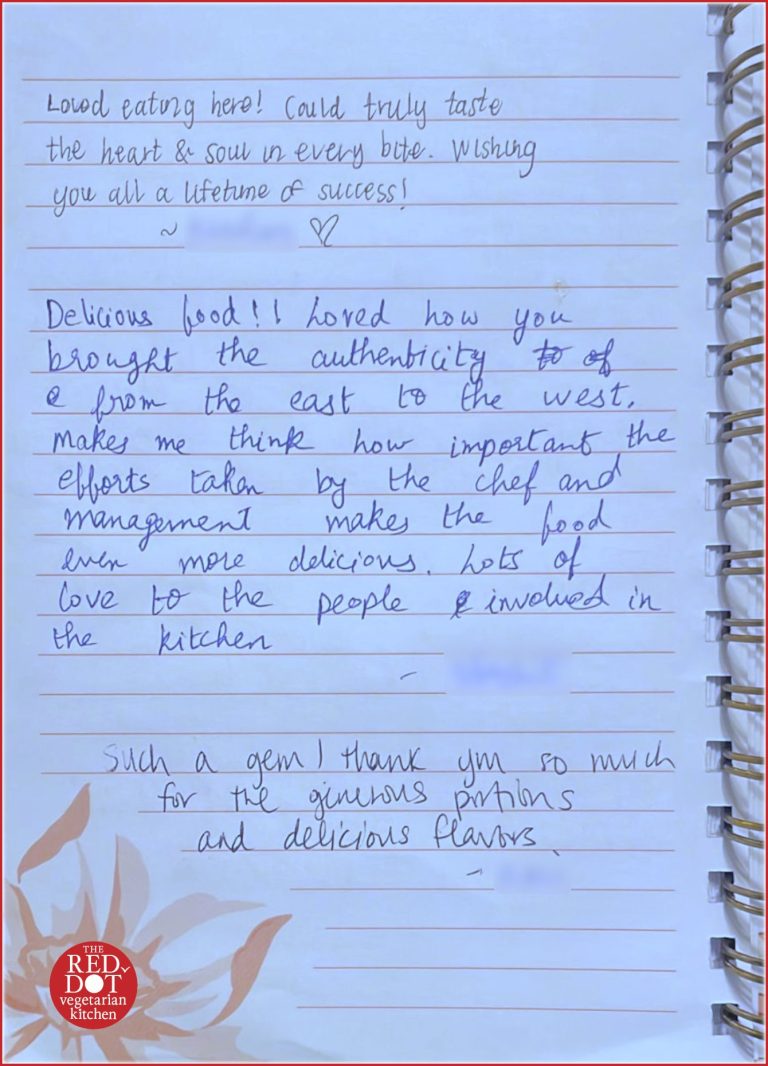 Loved eating here! Could truly taste
the heart & soul in every bite. Wishing
you all a lifetime of success!
~ ♡
Delicious food!! Loved how you
brought the authenticity to of
e from the east to the west.
Makes me think how important the
efforts taken by the chef and
management makes the food
even more delicious. Lots of
love to the people involved in
the kitchen
-
Such a gem! thank you so much
for the generous portions
and delicious flavors.
-
THE
RED
DOT
vegetarian
kitchen